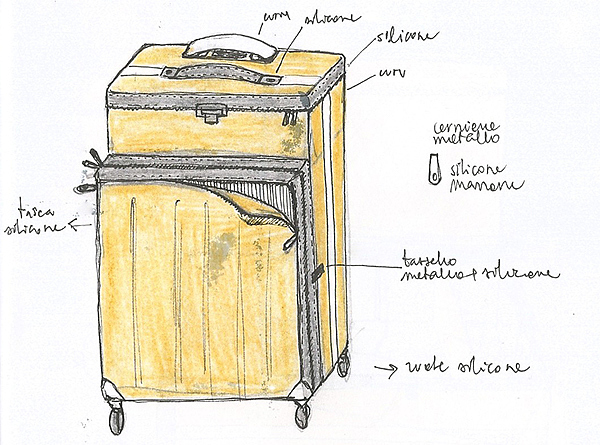 curv
silicone
silicone
curv
cerniere
metallo
silicone
marrone
tasca
silicone
tassello
metallo + silicone
→ ruote silicone